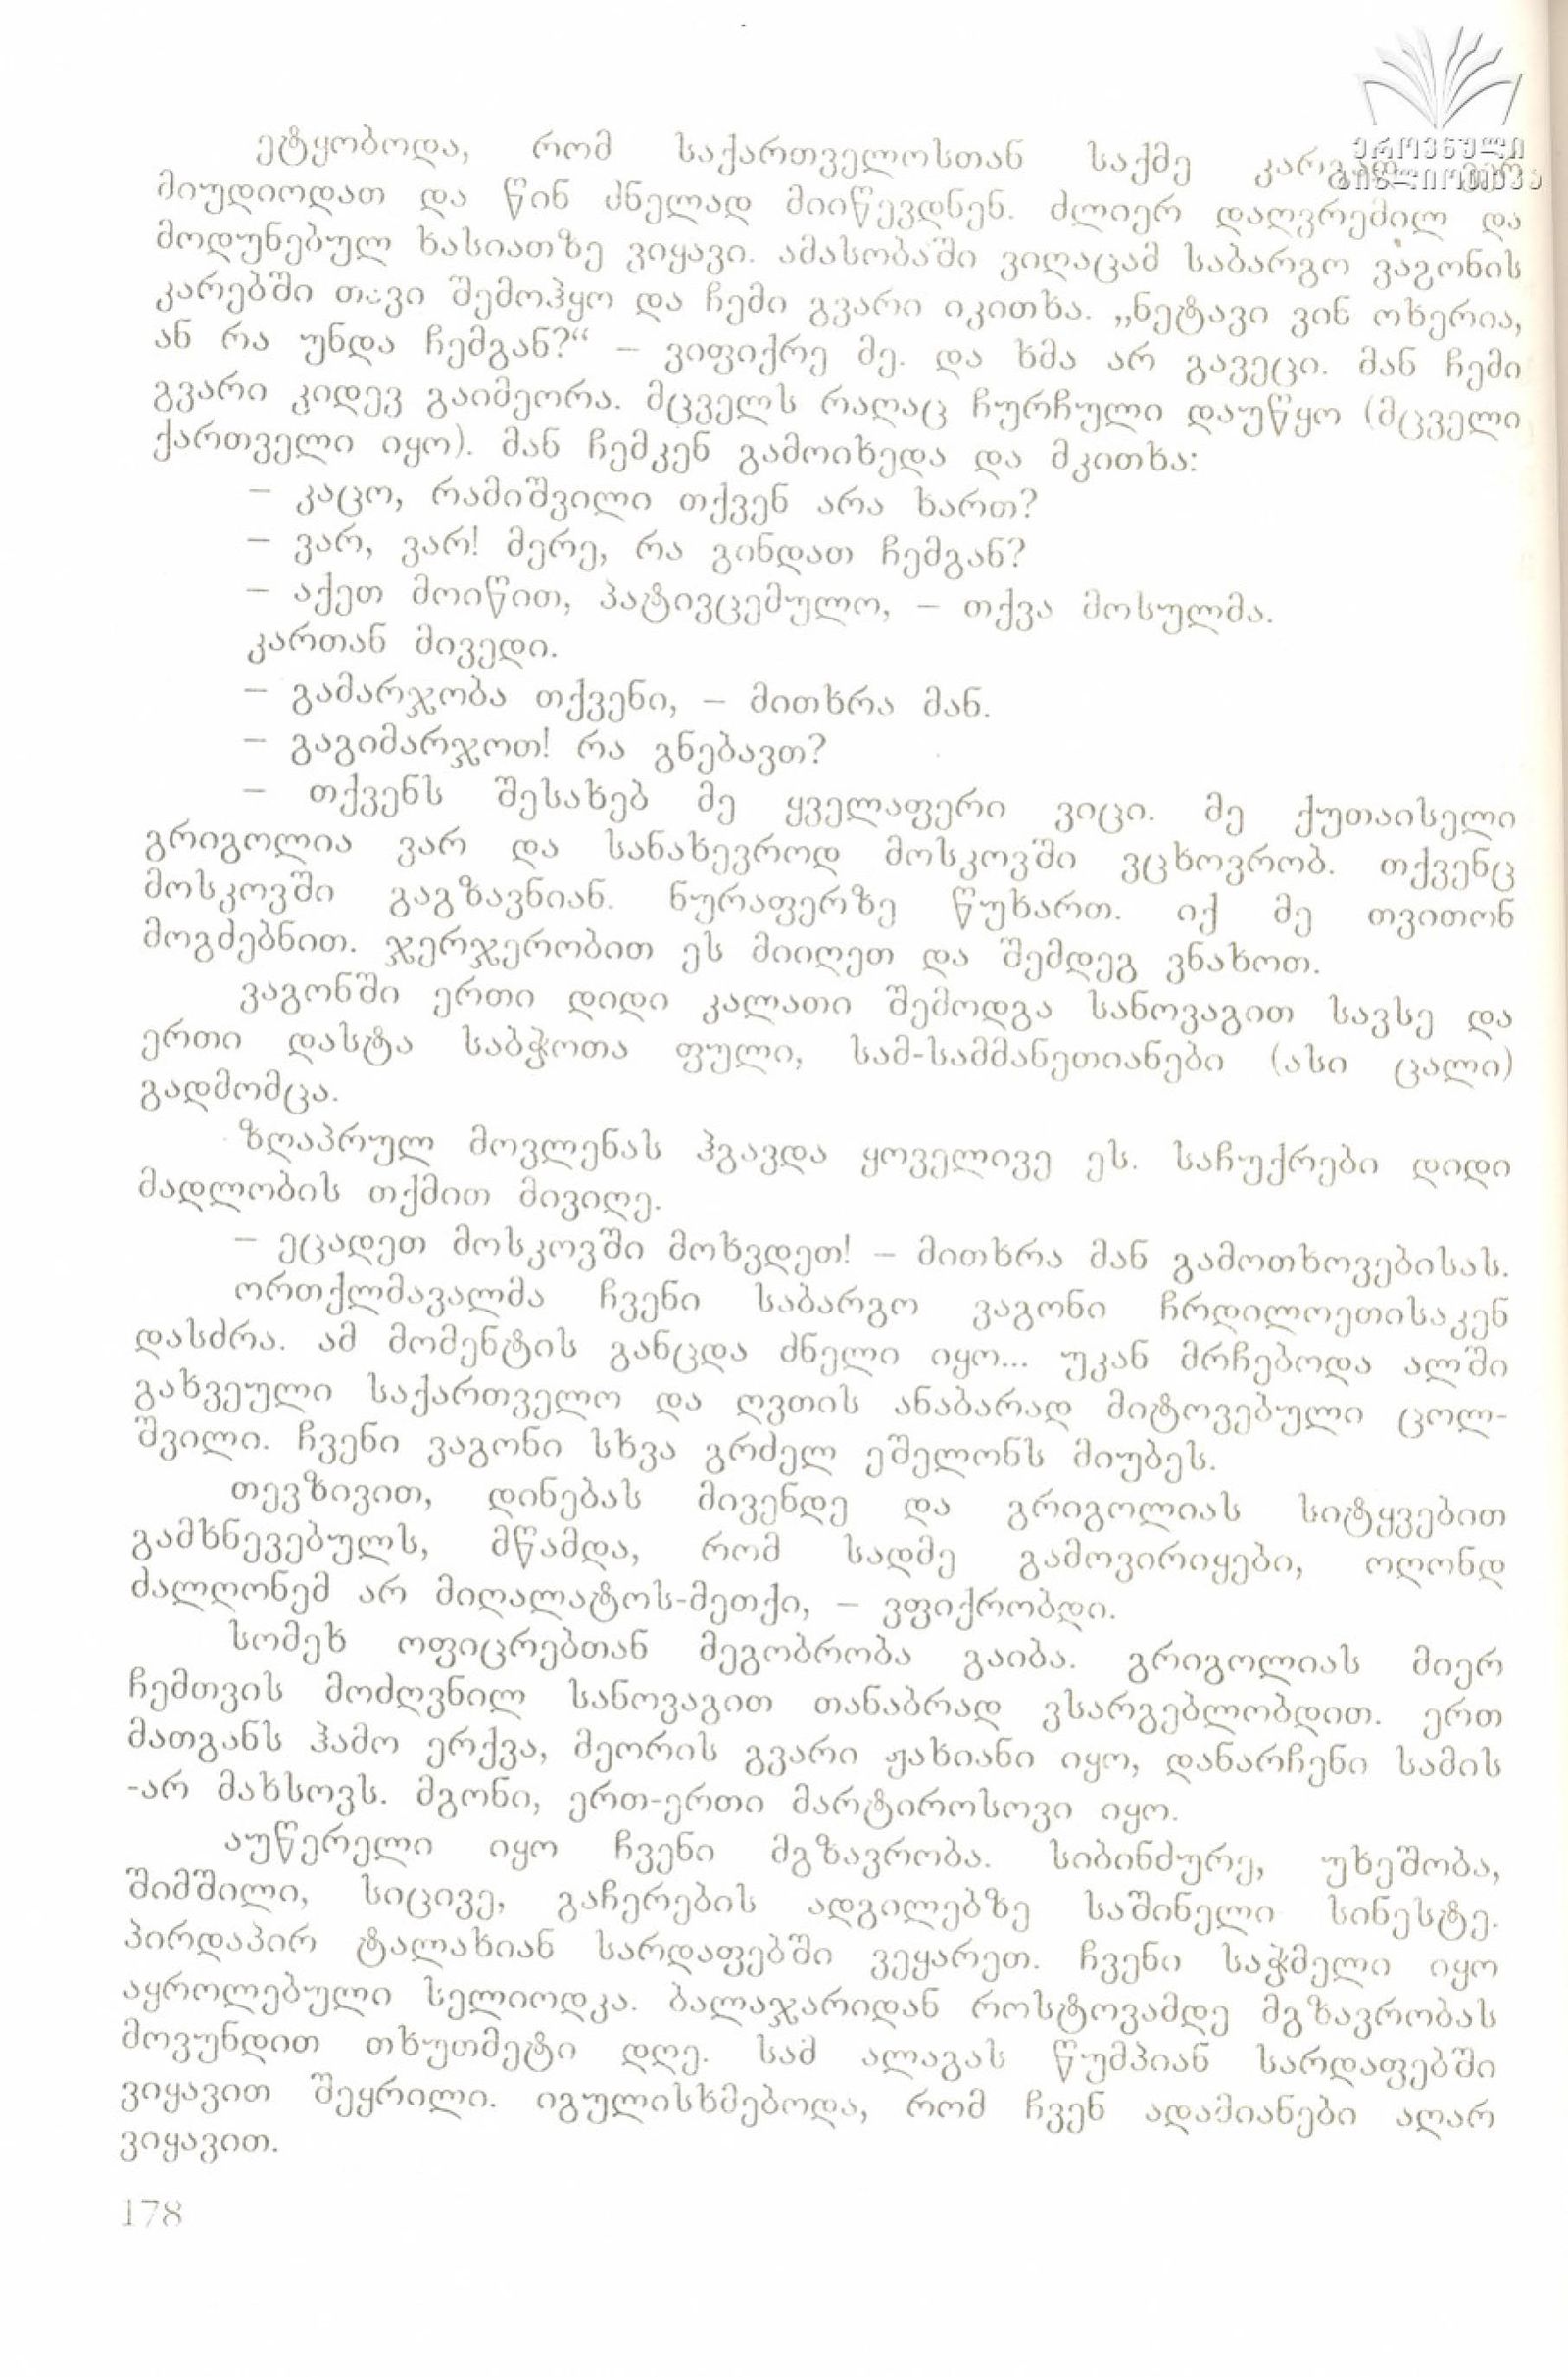 ეროვნული
ბიბლიოთეკა
ეტყობოდა, რომ საქართველოსთან საქმე კარგად ვერ
მიუდიოდათ და წინ ძნელად მიიწევდნენ. ძლიერ დაღვრემილ და
მოდუნებულ ხასიათზე ვიყავი. ამასობაში ვიღაცამ საბარგო ვაგონის
კარებში თავი შემოჰყო და ჩემი გვარი იკითხა. „ნეტავი ვინ ოხერია,
ან რა უნდა ჩემგან?“ – ვიფიქრე მე. და ხმა არ გავეცი. მან ჩემი
გვარი კიდევ გაიმეორა. მცველს რაღაც ჩურჩული დაუწყო (მცველი
ქართველი იყო). მან ჩემკენ გამოიხედა და მკითხა:
– კაცო, რამიშვილი თქვენ არა ხართ?
– ვარ, ვარ! მერე, რა გინდათ ჩემგან?
– აქეთ მოიწით, პატივცემულო, – თქვა მოსულმა.
კართან მივედი.
– გამარჯობა თქვენი, – მითხრა მან.
– გაგიმარჯოთ! რა გნებავთ?
– თქვენს შესახებ მე ყველაფერი ვიცი. მე ქუთაისელი
გრიგოლია ვარ და სანახევროდ მოსკოვში ვცხოვრობ. თქვენც
მოსკოვში გაგზავნიან. ნურაფერზე წუხართ. იქ მე თვითონ
მოგძებნით. ჯერჯერობით ეს მიიღეთ და შემდეგ ვნახოთ.
ვაგონში ერთი დიდი კალათი შემოდგა სანოვაგით სავსე და
ერთი დასტა საბჭოთა ფული, სამ-სამმანეთიანები (ასი ცალი)
გადმომცა.
ზღაპრულ მოვლენას ჰგავდა ყოველივე ეს. საჩუქრები დიდი
მადლობის თქმით მივიღე.
– ეცადეთ მოსკოვში მოხვდეთ! – მითხრა მან გამოთხოვებისას.
ორთქლმავალმა ჩვენი საბარგო ვაგონი ჩრდილოეთისაკენ
დასძრა. ამ მომენტის განცდა ძნელი იყო... უკან მრჩებოდა ალში
გახვეული საქართველო და ღვთის ანაბარად მიტოვებული ცოლ-
შვილი. ჩვენი ვაგონი სხვა გრძელ ეშელონს მიუბეს.
თევზივით, დინებას მივენდე და გრიგოლიას სიტყვებით
გამხნევებულს, მწამდა, რომ სადმე გამოვირიყები, ოღონდ
ძალღონემ არ მიღალატოს-მეთქი, – ვფიქრობდი.
სომეხ ოფიცრებთან მეგობრობა გაიბა. გრიგოლიას მიერ
ჩემთვის მოძღვნილ სანოვაგით თანაბრად ვსარგებლობდით. ერთ
მათგანს ჰამო ერქვა, მეორის გვარი ჟახიანი იყო, დანარჩენი სამის
-არ მახსოვს. მგონი, ერთ-ერთი მარტიროსოვი იყო.
აუწერელი იყო ჩვენი მგზავრობა. სიბინძურე, უხეშობა,
შიმშილი, სიცივე, გაჩერების ადგილებზე საშინელი სინესტე.
პირდაპირ ტალახიან სარდაფებში ვეყარეთ. ჩვენი საჭმელი იყო
აყროლებული სელიოდკა. ბალაჯარიდან როსტოვამდე მგზავრობას
მოვუნდით თხუთმეტი დღე. სამ ალაგას წუმპიან სარდაფებში
ვიყავით შეყრილი. იგულისხმებოდა, რომ ჩვენ ადამიანები აღარ
ვიყავით.
178